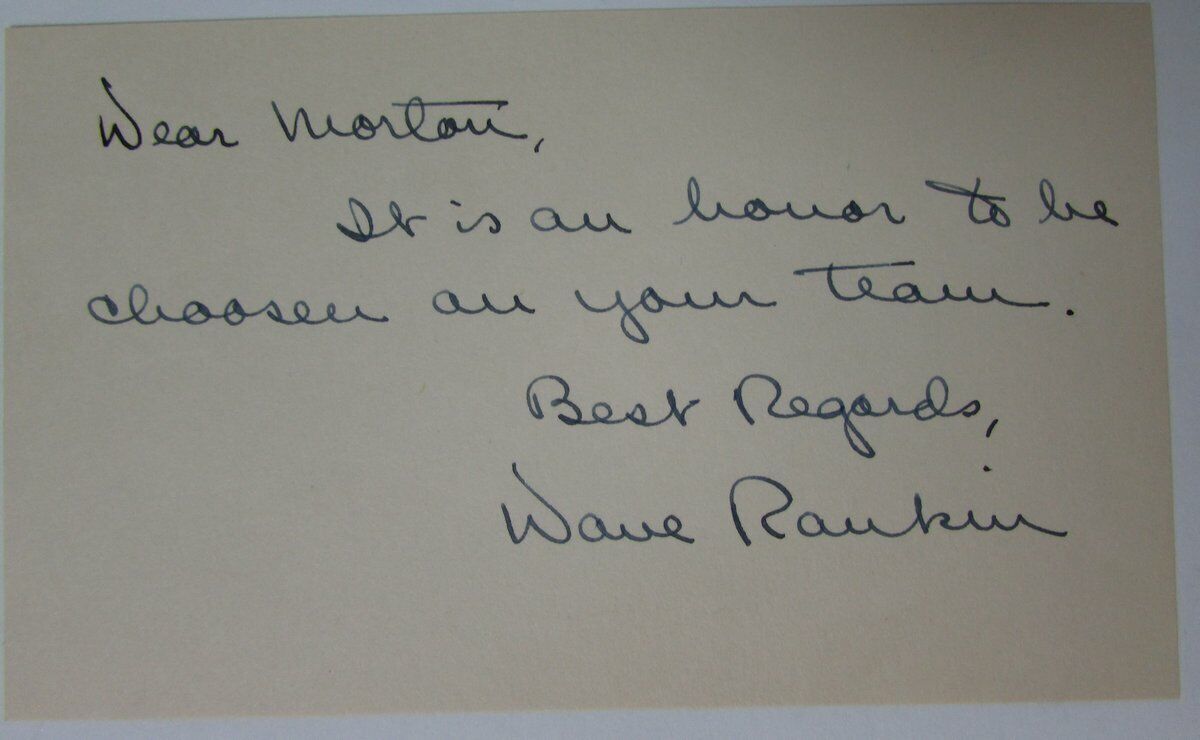 Dear Morton,
It is an honor to be
choosen on your team.
Best Regards,
Dave Rankin